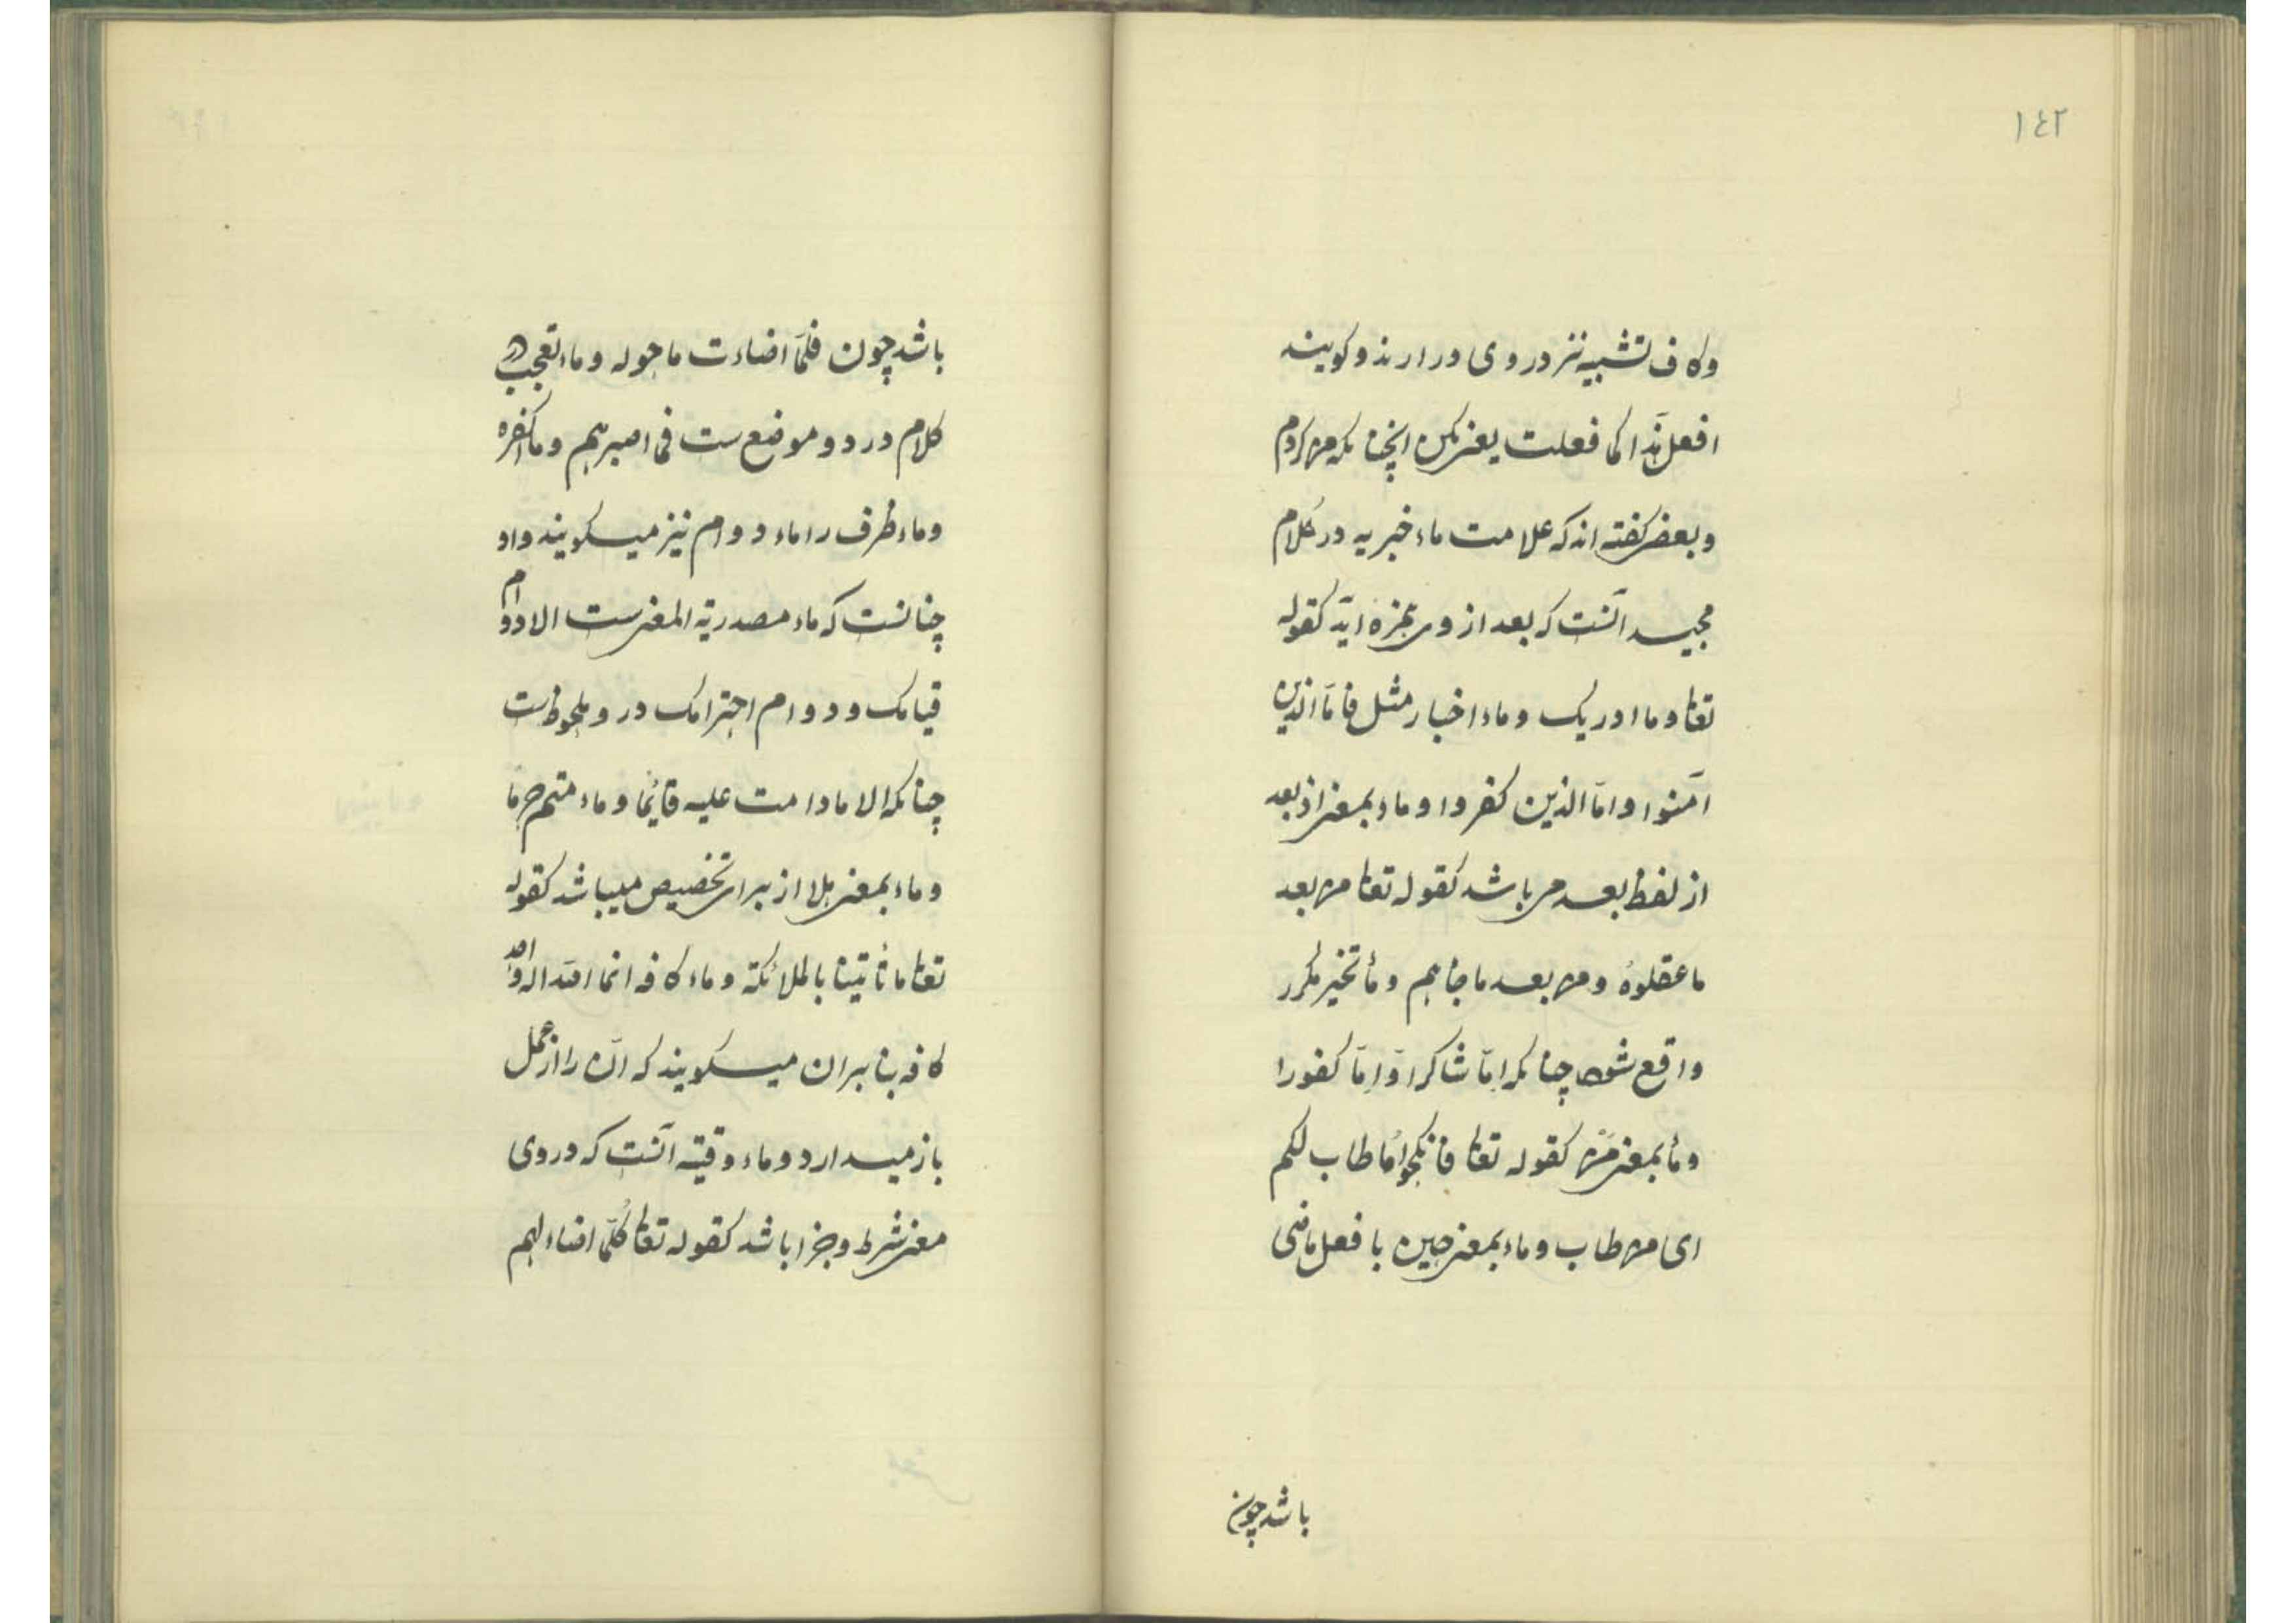 ١٤٢
وکاف تشبیه نیز در وی در ارند و کویند
افعل هذا کما فعلت یعنی بکن انچنانکه من کردم
و بعضی کفته اند که علامت ماء خبریه در کلام
مجید آنست که بعد از وی همزه آید کقوله
تعالی و ما ادریک و ماء اخبار مثل فامّا الذین
آمنوا و امّا الذین کفروا و ماء بمعنی اذ بعد
از لفظ بعد می باشد کقوله تعالی من بعد
ما عقلوهُ و من بعد ما جاءهم و ماء تخیر مکرر
واقع شود چنانکه اِمّا شاکرا وّ اِمّا کفورا
و ماء بمعنی مَنْ کقوله تعالی فانکحوا مَا طاب لکم
ای من طاب و ماء بمعنی حین با فعل ماضی
باشد چون
باشد چون فلمّا اضاءت ما حوله و ماء تعجب در
کلام در دو موضع ست فما اصبرهم و ما اکفره
و ماء ظرف را ماء دوام نیز میکویند و او
چنانست که ماء مصدریة المعنی ست الا دوام
قیامک و دوام احترامک در و ملحوظ ست
چنانکه الا ما دامت علیه قائمًا و ماء متمم حرمًا
و ماء بمعنی هلا از برای تخصیص میباشد کقوله
تعالی ما تأتینا بالملائکة و ماء کافه انما الله اله واحد
کافه بنابران میکویند که انّ را از عمل
باز میدارد و ماء وقتیه آنست که در وی
معنی شرط و جزا باشد کقوله تعالی کُلّما اضاء لهم